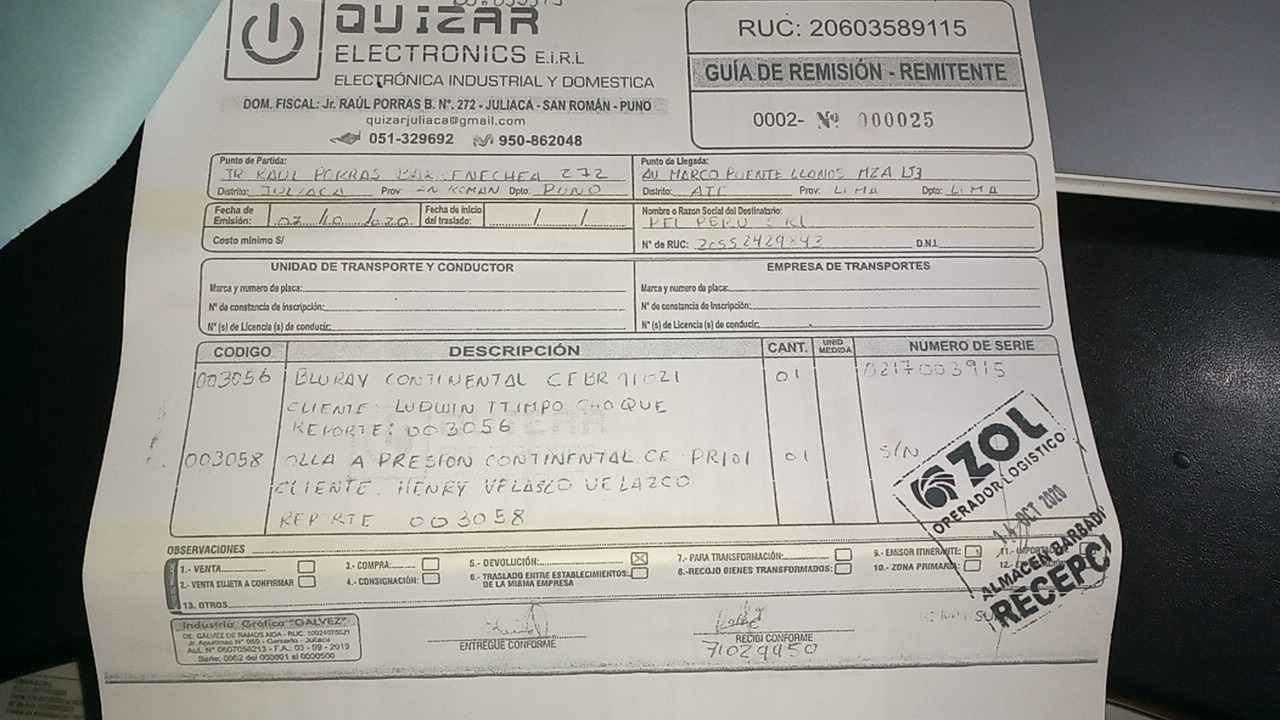 QUIZAR
ELECTRONICS E.I.R.L
ELECTRÓNICA INDUSTRIAL Y DOMESTICA
DOM. FISCAL: Jr. RAÚL PORRAS B. Nº. 272 - JULIACA - SAN ROMÁN - PUNO
quizarjuliaca@gmail.com
051-329692 950-862048
RUC: 20603589115
GUÍA DE REMISIÓN - REMITENTE
0002- Nº 000025
Punto de Partida:
JR RAUL PORRAS 272
Distrito: JULIACA Prov: ROMAN Dpto: PUNO
Punto de Llegada:
AV MARCO PUENTE LLANOS MZA
Distrito: ATE Prov: LIMA Dpto: LIMA
Fecha de Emisión: /10/2020 Fecha de inicio del traslado: / /
Costo minimo S/
Nombre o Razon Social del Destinatario:
PEL PERU SRL
N° de RUC: D.N.I.
UNIDAD DE TRANSPORTE Y CONDUCTOR
Marca y numero de placa:
N° de constancia de inscripción:
N° (s) de Licencia (s) de conducir:
EMPRESA DE TRANSPORTES
Marca y numero de placa:
N° de constancia de Inscripción:
N° (s) de Licencia (s) de conducir:
CODIGO DESCRIPCIÓN CANT. UNID MEDIDA NUMERO DE SERIE
003056 BLURAY CONTINENTAL CEBR 91021 01 0217003915
CLIENTE: LUDWIN TTIMPO CHOQUE
REPORTE: 003056
003058 OLLA A PRESION CONTINENTAL CE PR101 01 S/N
CLIENTE: HENRY VELASCO VELAZCO
REPORTE 003058
OZOL
OPERADOR LOGISTICO
14 OCT 2020
ALMACEN BARBAD
RECEPCI
OBSERVACIONES
1.- VENTA 3.- COMPRA: 5.- DEVOLUCIÓN: 7.- PARA TRANSFORMACIÓN: 9.- EMISOR ITINERANTE: 11.-
2.- VENTA SUJETA A CONFIRMAR 4.- CONSIGNACIÓN: 6.- TRASLADO ENTRE ESTABLECIMIENTOS: DE LA MISMA EMPRESA 8.- RECOJO BIENES TRANSFORMADOS: 10.- ZONA PRIMARIA: 12.-
13. OTROS
Industria Gráfica "GALVEZ"
DE: GALVEZ DE RAMOS AIDA - RUC:
Jr. Apurimac N° 959 - Cercado - Juliaca
AUt. N° 0607058213 - F.A.: 03 - 09 - 2019
Serie: 0002 del 000001 al 0000500
ENTREGUE CONFORME
RECIBI CONFORME
71029450